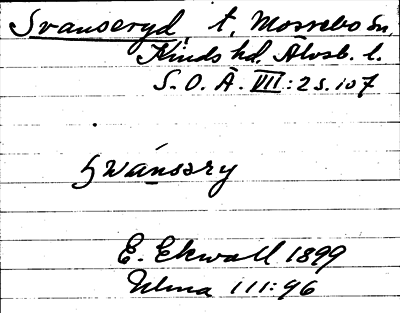 Svanseryd, t, Mossebo sn,
Kinds hd. Älvsb. l.
S. O. Ä. VII: 2 s. 107
svánsəry
E. Ekwall 1899
Ulma 111:96